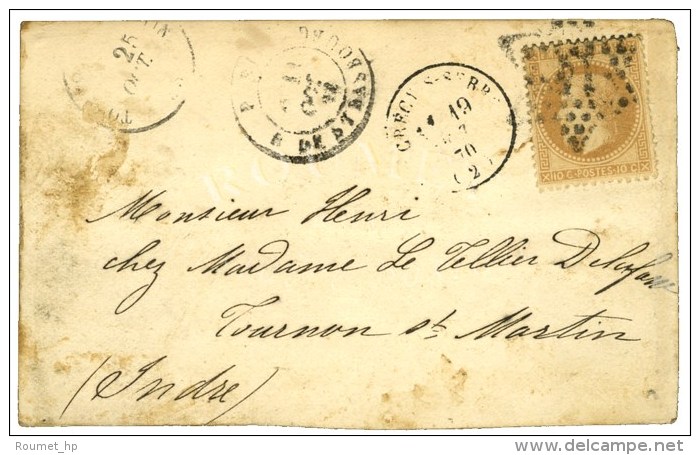 25
OCT.
R. DE STRASBOURG
CRÉCY-S-SERRE
19
70
(2)
10 C. POSTES 10 C
Monsieur Henri
chez Madame Le Tellier
Tournon st Martin
(Indre)
Roumet_hp
www.delcampe.net